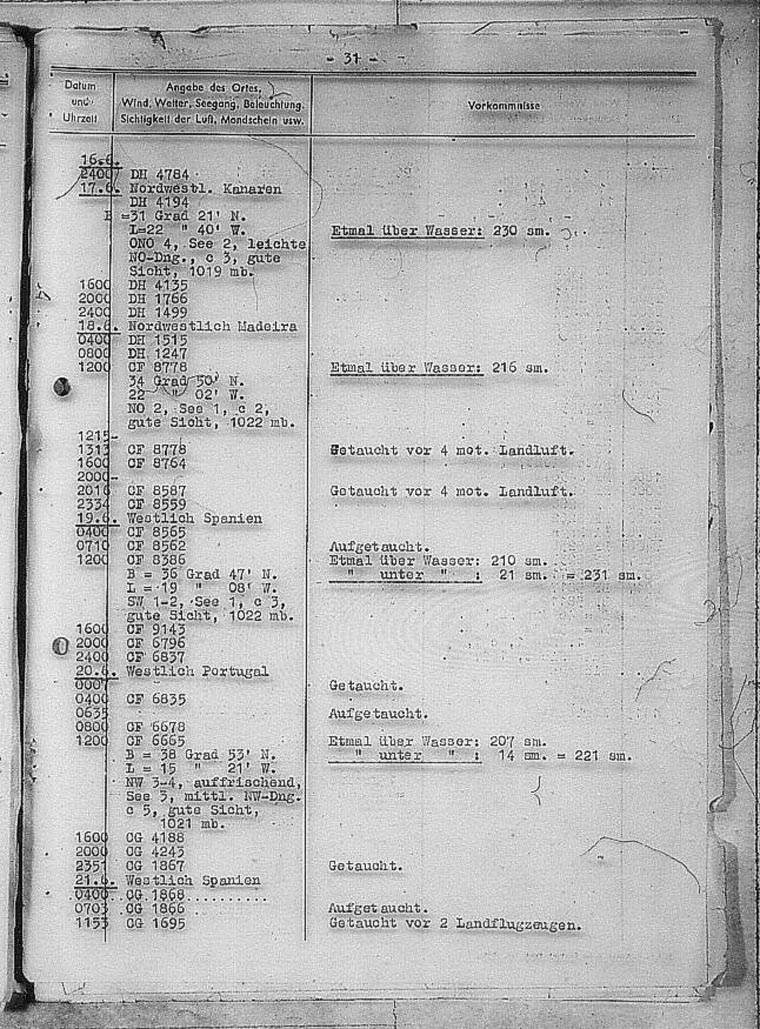 - 31 -
Datum
und
Uhrzeit
Angabe des Ortes,
Wind, Wetter, Seegang, Beleuchtung,
Sichtigkeit der Luft, Mondschein usw.
Vorkommnisse
16.6.
2400 DH 4784
17.6. Nordwestl. Kanaren
DH 4194
B =31 Grad 21' N.
L=22 " 40' W. Etmal über Wasser: 230 sm.
ONO 4, See 2, leichte
NO-Dng., c 3, gute
Sicht, 1019 mb.
1600 DH 4135
2000 DH 1766
2400 DH 1499
18.6. Nordwestlich Madeira
0400 DH 1515
0800 DH 1247
1200 CF 8778 Etmal über Wasser: 216 sm.
34 Grad 50' N.
22 " 02' W.
NO 2, See 1, c 2,
gute Sicht, 1022 mb.
1215-
1313 CF 8778 Getaucht vor 4 mot. Landluft.
1600 CF 8764
2000-
2016 CF 8587 Getaucht vor 4 mot. Landluft.
2334 CF 8559
19.6. Westlich Spanien
0400 CF 8565
0710 CF 8562 Aufgetaucht.
1200 CF 8386 Etmal über Wasser: 210 sm.
B = 36 Grad 47' N. " unter " : 21 sm. = 231 sm.
L = 19 " 08' W.
SW 1-2, See 1, c 3,
gute Sicht, 1022 mb.
1600 CF 9143
2000 CF 6796
2400 CF 6837
20.6. Westlich Portugal
0007 Getaucht.
0400 CF 6835
0635 Aufgetaucht.
0800 CF 6678
1200 CF 6665 Etmal über Wasser: 207 sm.
B = 38 Grad 53' N. " unter " : 14 sm. = 221 sm.
L = 15 " 21' W.
NW 3-4, auffrischend,
See 3, mittl. NW-Dng.
c 5, gute Sicht,
1021 mb.
1600 CG 4188
2000 CG 4243
2351 CG 1867 Getaucht.
21.6. Westlich Spanien
0400 CG 1868
0703 CG 1866 Aufgetaucht.
1153 CG 1695 Getaucht vor 2 Landflugzeugen.